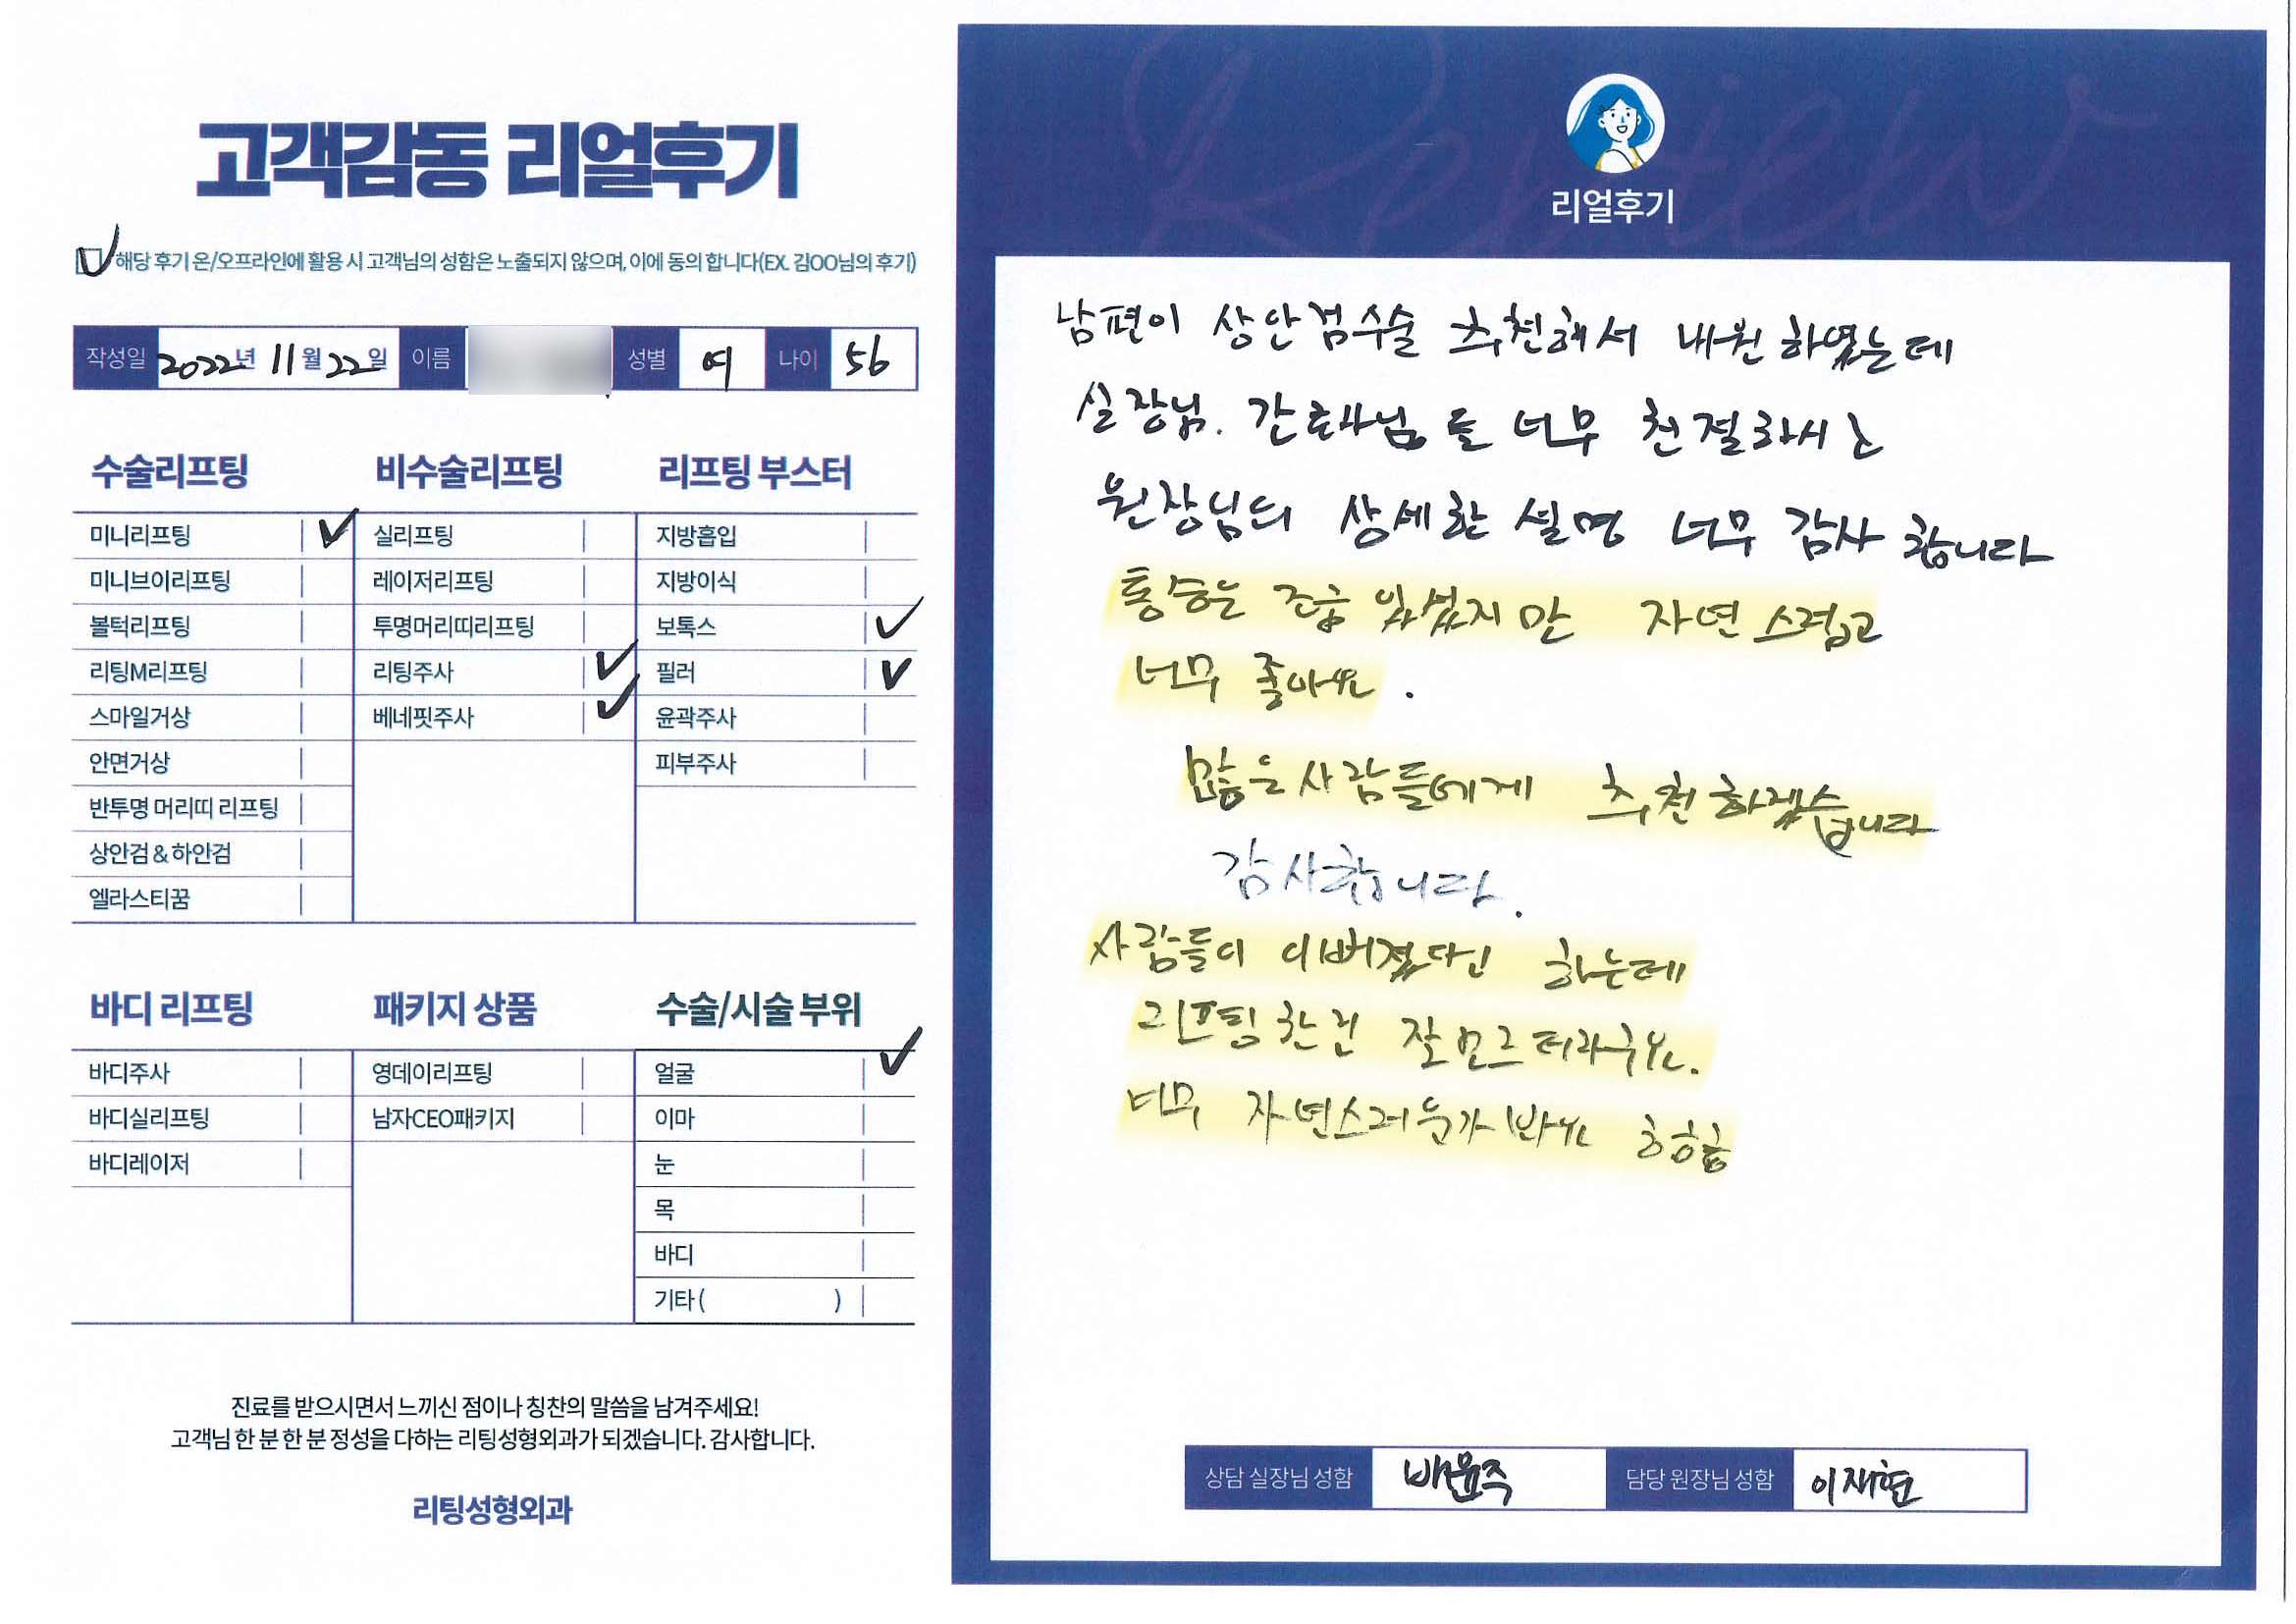 고객감동 리얼후기
해당 후기 온/오프라인에 활용 시 고객님의 성함은 노출되지 않으며, 이에 동의 합니다(EX. 김OO님의 후기)
작성일 2022년 11월 22일 이름 성별 여 나이 56
수술리프팅
미니리프팅
미니브이리프팅
볼턱리프팅
리팅M리프팅
스마일거상
안면거상
반투명 머리띠 리프팅
상안검 & 하안검
엘라스티꿈
비수술리프팅
실리프팅
레이저리프팅
투명머리띠리프팅
리팅주사
베네핏주사
리프팅 부스터
지방흡입
지방이식
보톡스
필러
윤곽주사
피부주사
바디 리프팅
바디주사
바디실리프팅
바디레이저
패키지 상품
영데이리프팅
남자CEO패키지
수술/시술 부위
얼굴
이마
눈
목
바디
기타 ( )
진료를 받으시면서 느끼신 점이나 칭찬의 말씀을 남겨주세요!
고객님 한 분 한 분 정성을 다하는 리팅성형외과가 되겠습니다. 감사합니다.
리팅성형외과
Review
리얼후기
남편이 상안검수술 추천해서 내원 하였는데
실장님. 간호사님 들 너무 친절하시고
원장님의 상세한 설명 너무 감사 합니다
통증는 조금 있었지만 자연 스럽고
너무 좋아요.
많은 사람들에게 추천 하겠습니다
감사합니다.
사람들이 이뻐졌다진 하는데
리프팅 한건 잘 모르더라구요.
너무 자연스러운가 봐요 ㅎㅎㅎ
상담 실장님 성함 배윤주 담당 원장님 성함 이재현